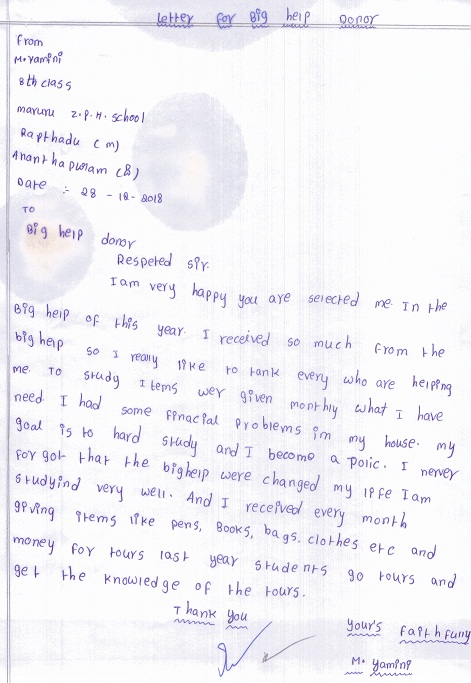 Letter For Big help Donor
From
M. Yamini
8th class
maruru Z.P.H. school
Rapthadu (m)
Ananthapuram (&)
Date :- 28 - 12 - 2018
TO
Big help donor
Respeted sir.
I am very happy you are selected me. In the
Big help of this year. I received so much from the
big help so I really like to tank every who are helping
me. To study Items wer given monthly what I have
need I had some finacial problems im my house. my
goal is to hard study and I become a polic. I never
forgot that the bighelp were changed my life I am
studyind very well. And I received every month
giving items like pens, Books, bags. clothes etc and
money for tours last year students go tours and
get the knowledge of the tours.
Thank you
your's faithfully
M. yamini